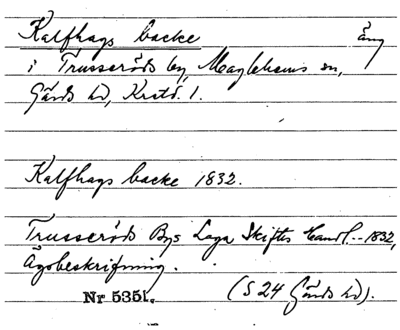 Kalfhags backe äng
i Trusseröds by, Maglehems sn,
Gärds hd, Krstd. l.
Kalfhags backe 1832.
Trusseröds Bys Laga Skiftes Handl. -- 1832,
Ägobeskrifning.
(S 24 Gärds hd).
Nr 5351.